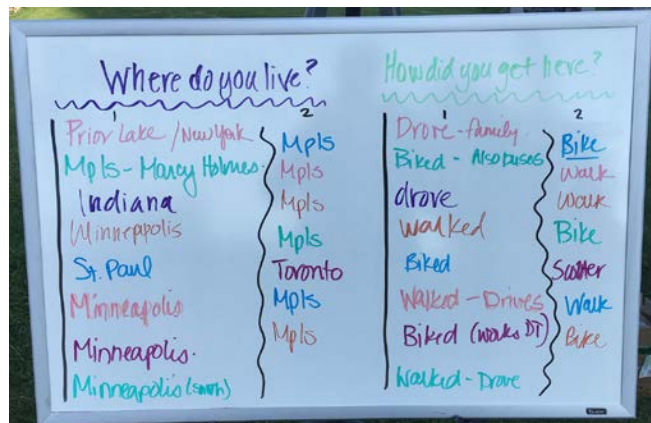 Where do you live?
1
Prior Lake / New York
Mpls - Marcy Holmes.
Indiana
Minneapolis
St. Paul
Minneapolis
Minneapolis.
Minneapolis (South)
2
Mpls
Mpls
Mpls
Mpls
Toronto
Mpls
Mpls
How did you get here?
1
Drove - family
Biked - Also buses
drove
Walked
Biked
Walked - Drives
Biked (works DT)
Walked - Drove
2
Bike
Walk
Walk
Bike
Scooter
Walk
Bike